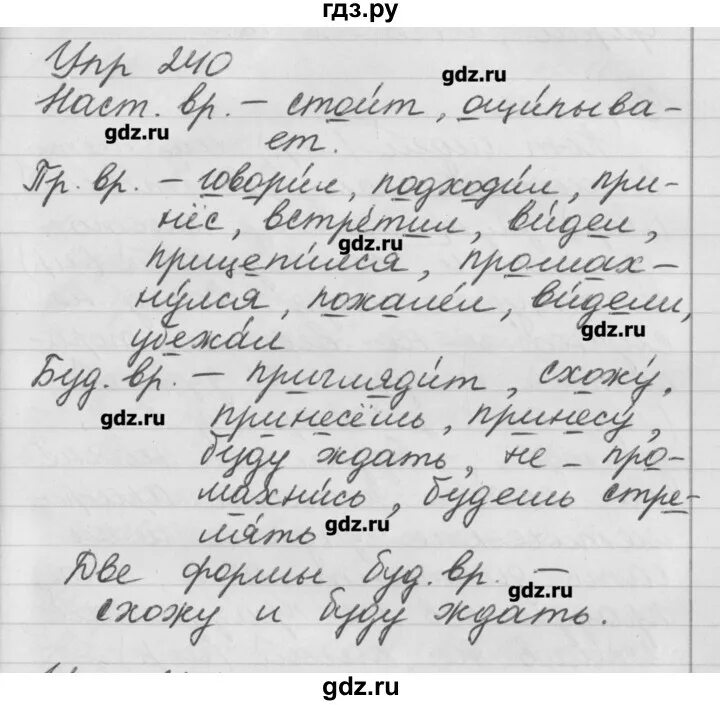 гдз.ру
Упр 240
gdz.ru
Наст. вр. – стоит, ощипыва-
gdz.ru
ет.
Пр. вр. – говорил, подходил, при-
нёс, встретил, видел,
gdz.ru
прицепился, промах-
нулся, пожалел, видели,
gdz.ru
убежал
Буд. вр. – приглядит, схожу,
gdz.ru
принесёшь, принесу,
буду ждать, не – про-
махнись, будешь стре-
лять
gdz.ru
Две формы буд. вр. –
gdz.ru
схожу и буду ждать.
gdz.ru